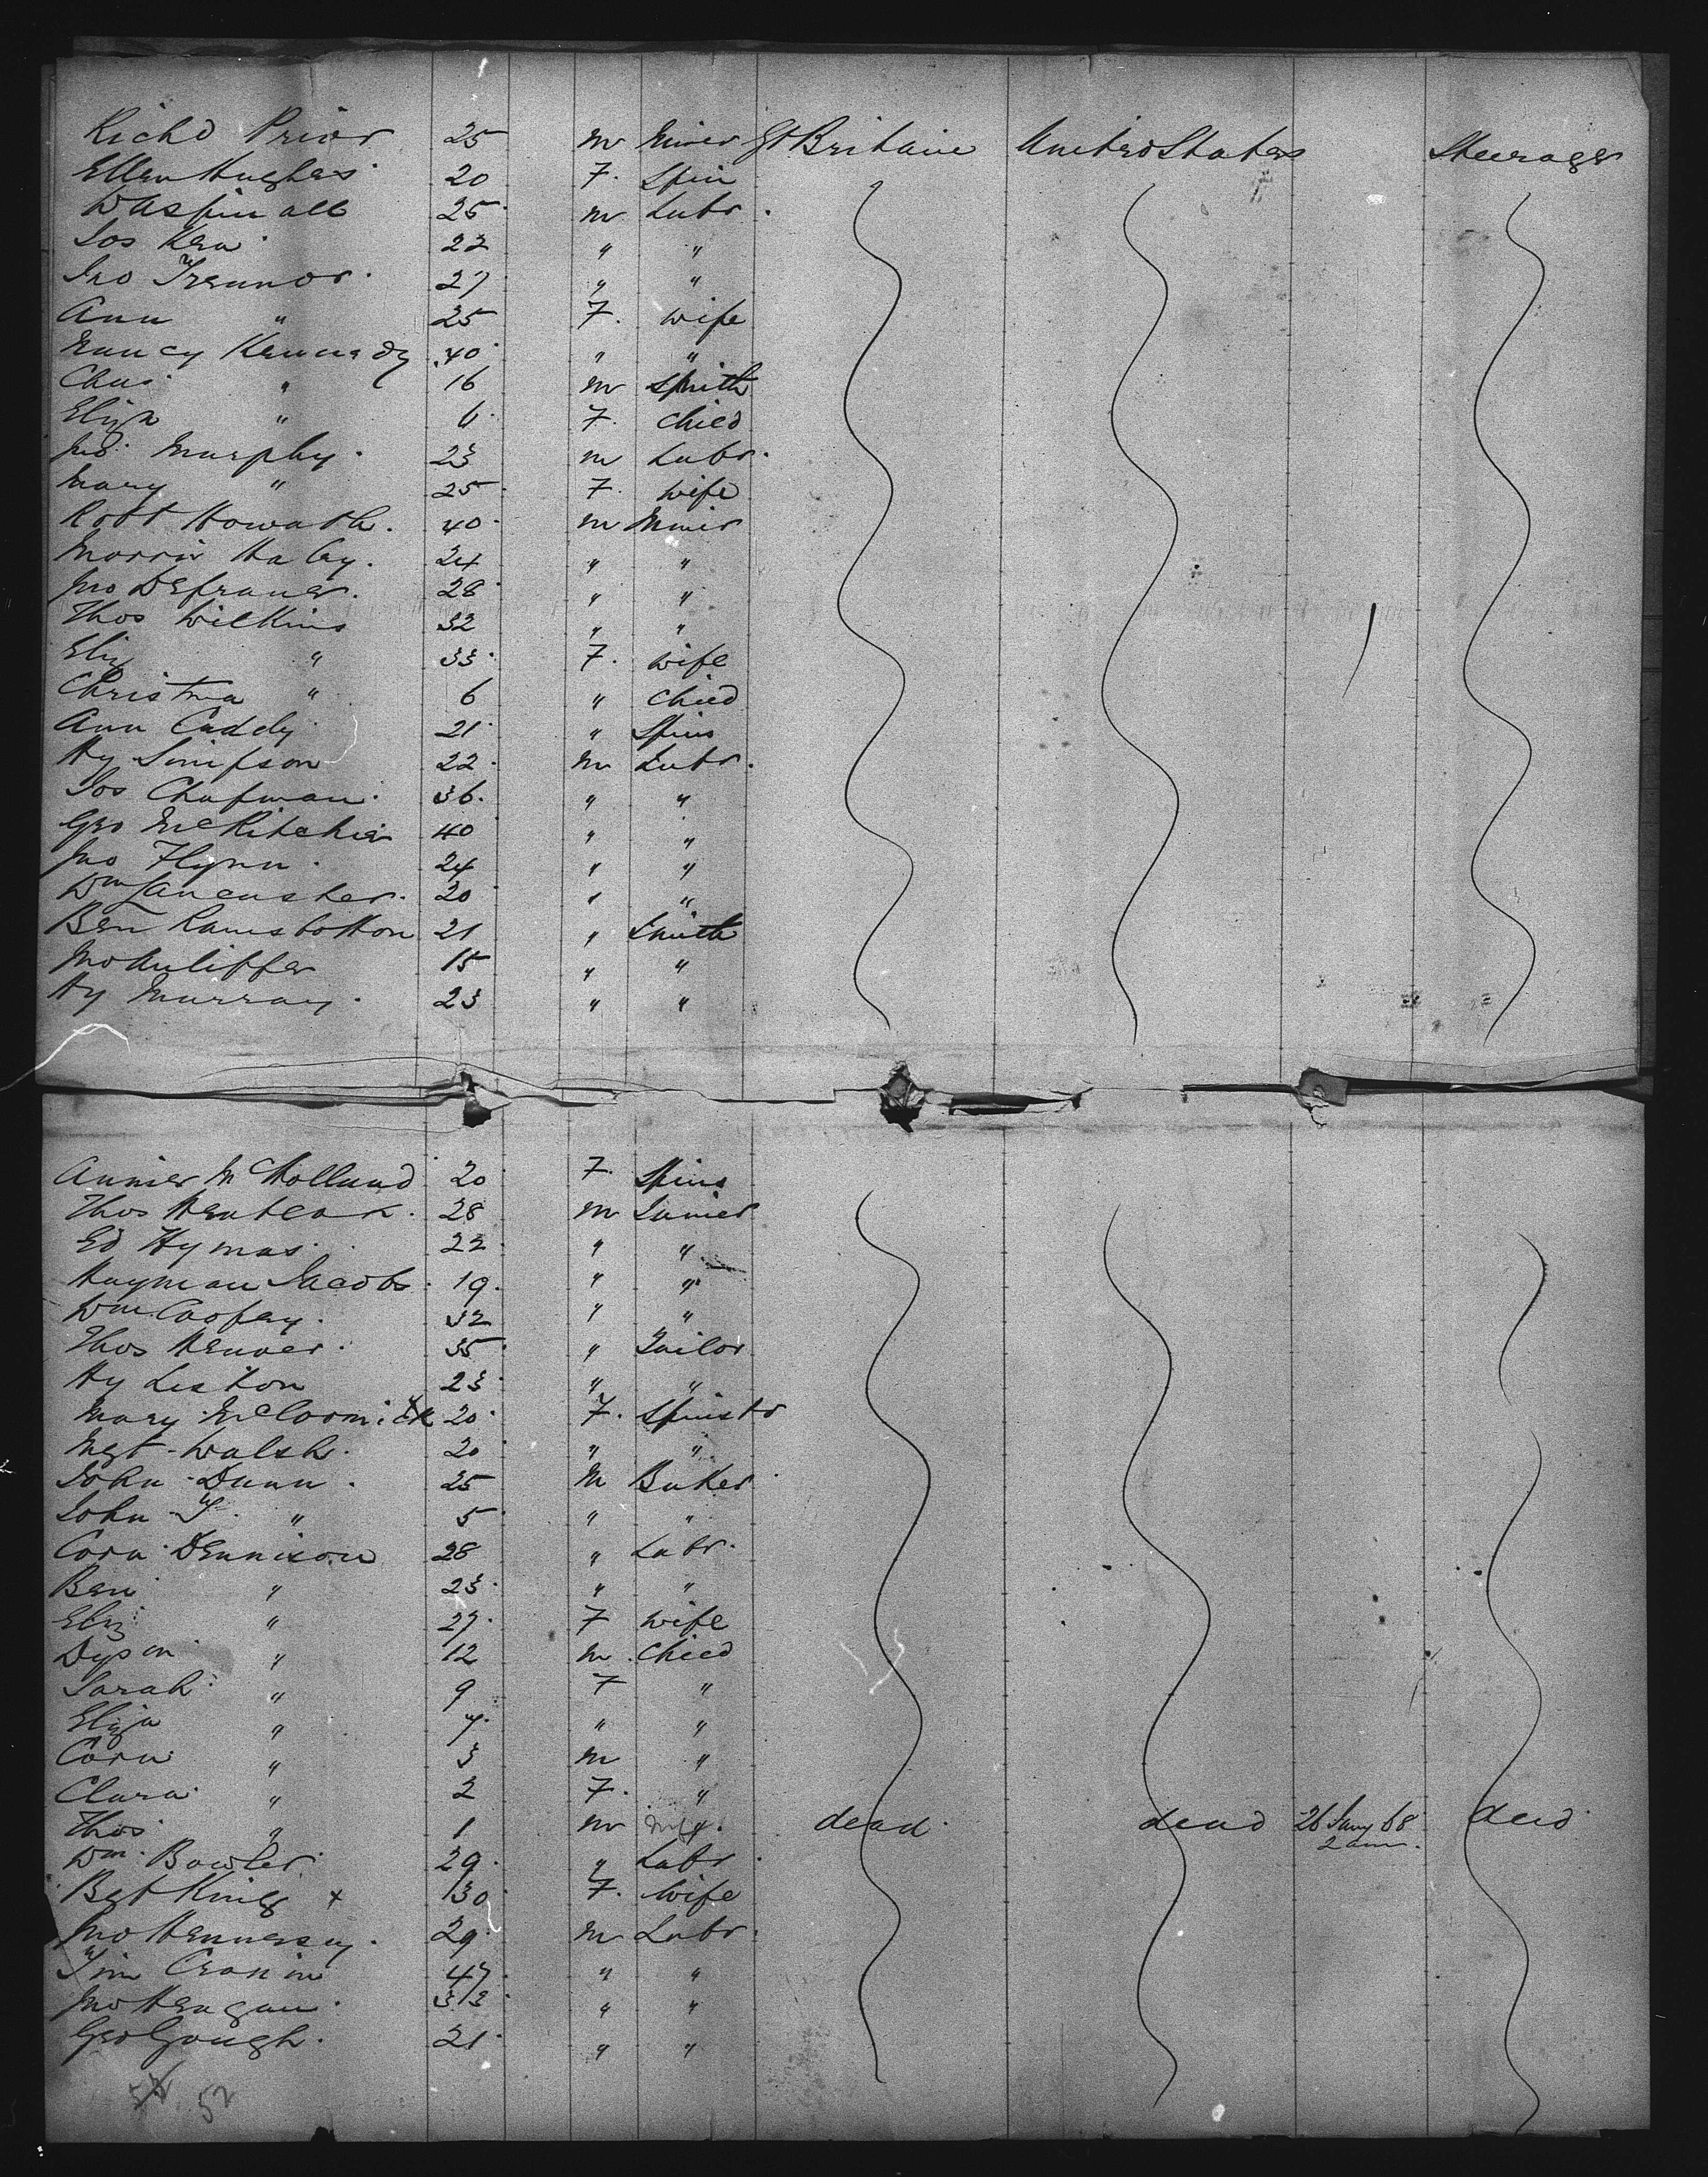 Richd Prior 25 m Miner Gt Britain United States Steerage
Ellen Hughes 20 F. Spin
W Aspinall 25 m Labr.
Jos Ken 22 " "
Jno Trennor 27 " "
Ann " 25 F. wife
Nancy Kennedy 40 " "
Chas " 16 m Smith
Eliza " 6 F. Child
Jno Murphy 23 m Labr.
Mary " 25 F. wife
Robt Howarth. 40 m Miner
Morris Haley. 24 " "
Jno Defraner. 28 " "
Thos Wilkins 32 " "
Eliz " 33 F. wife
Christina " 6 " child
Ann Caddy 21 " Spins
Hy Simpson 22 m Labr.
Jos Chapman 36. " "
Geo McRitchie 40 " "
Jno Flynn. 24 " "
Wm Lancaster. 20 " "
Ben Ramsbotton 21 " Smith
15 " "
Hy Murray. 23 " "
Annie McHolland 20 F. Spins
Thos 28 m Joiner
Ed Hymas. 22 " "
Hayman Jacobs. 19. " "
Wm 32 " "
Thos 35 " Tailor
Hy Liston 23 " "
Mary McCormick 20 F. Spinstr
Mgt Walsh. 20 " "
John Dunn. 25 M Baker
John T. " 5 " "
Corn Dennison 28 " Labr.
Ben " 23 " "
Eliz " 27. F wife
Dyson " 12 m. Child
Sarah " 9 F "
Eliza " 7. " "
Corn " 3 m "
Clara " 2 F. "
Thos " 1 m dead. dead 26 Jany 68 dead
2 am.
Wm Bowler 29. " Labr.
Bgt King x 30 F. Wife
Jno Hennessy. 29 m Labr.
Tim Cronin 47 " "
Jno Heagan. 33 " "
Geo Gough. 21 " "
52